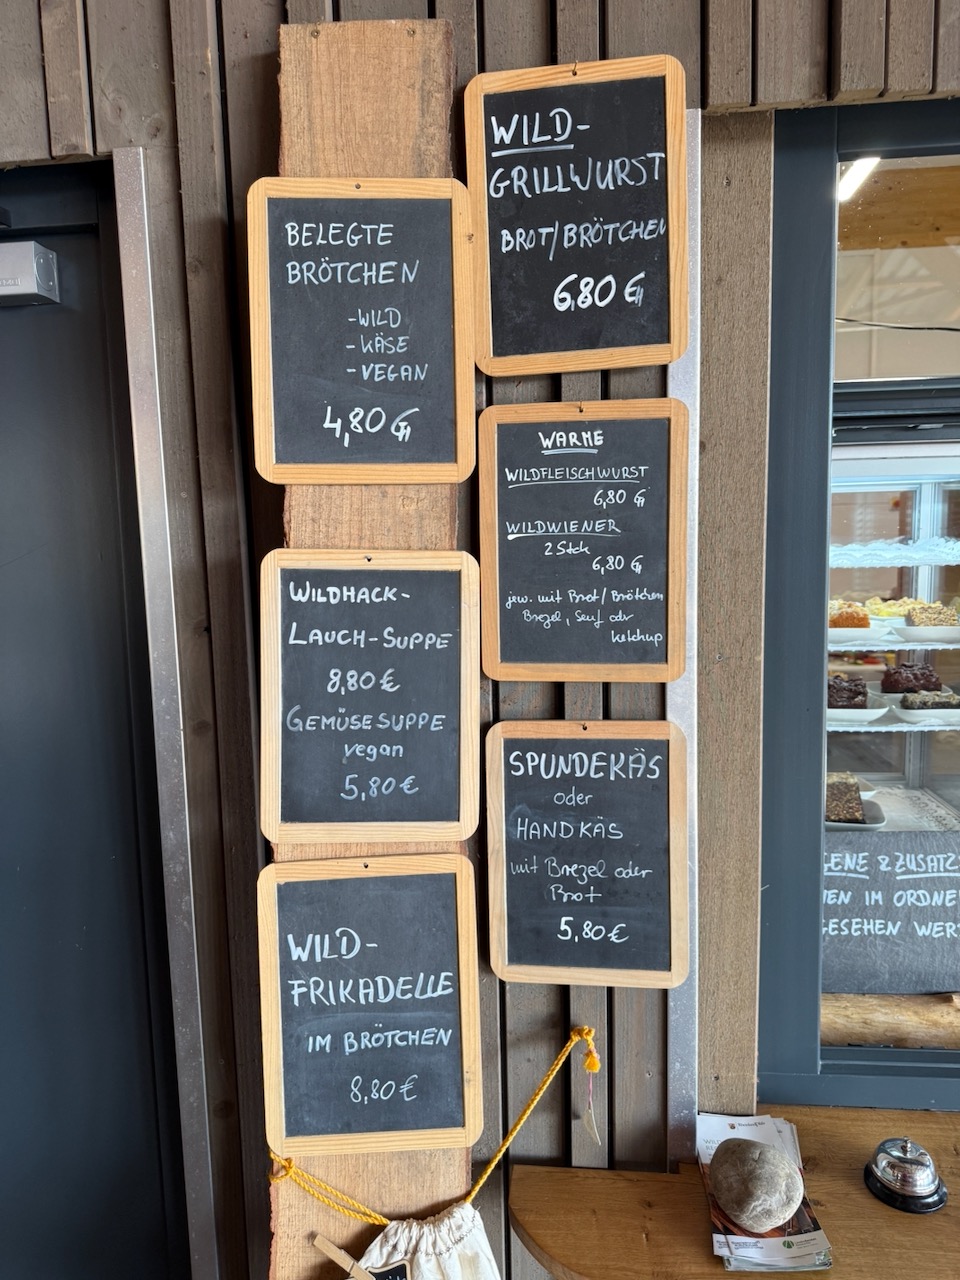 BELEGTE
BRÖTCHEN
-WILD
-KÄSE
-VEGAN
4,80 €
WILDHACK-
LAUCH-SUPPE
8,80 €
GEMÜSESUPPE
vegan
5,80 €
WILD-
FRIKADELLE
IM BRÖTCHEN
8,80 €
WILD-
GRILLWURST
BROT/BRÖTCHEN
6,80 €
WARME
WILDFLEISCHWURST
6,80 €
WILDWIENER
2 Stck
6,80 €
jew. mit Brot/Brötchen
Brezel, Senf oder
ketchup
SPUNDEKÄS
oder
HANDKÄS
mit Brezel oder
Brot
5,80 €
GENE & ZUSATZ
EN IM ORDNE
GESEHEN WER